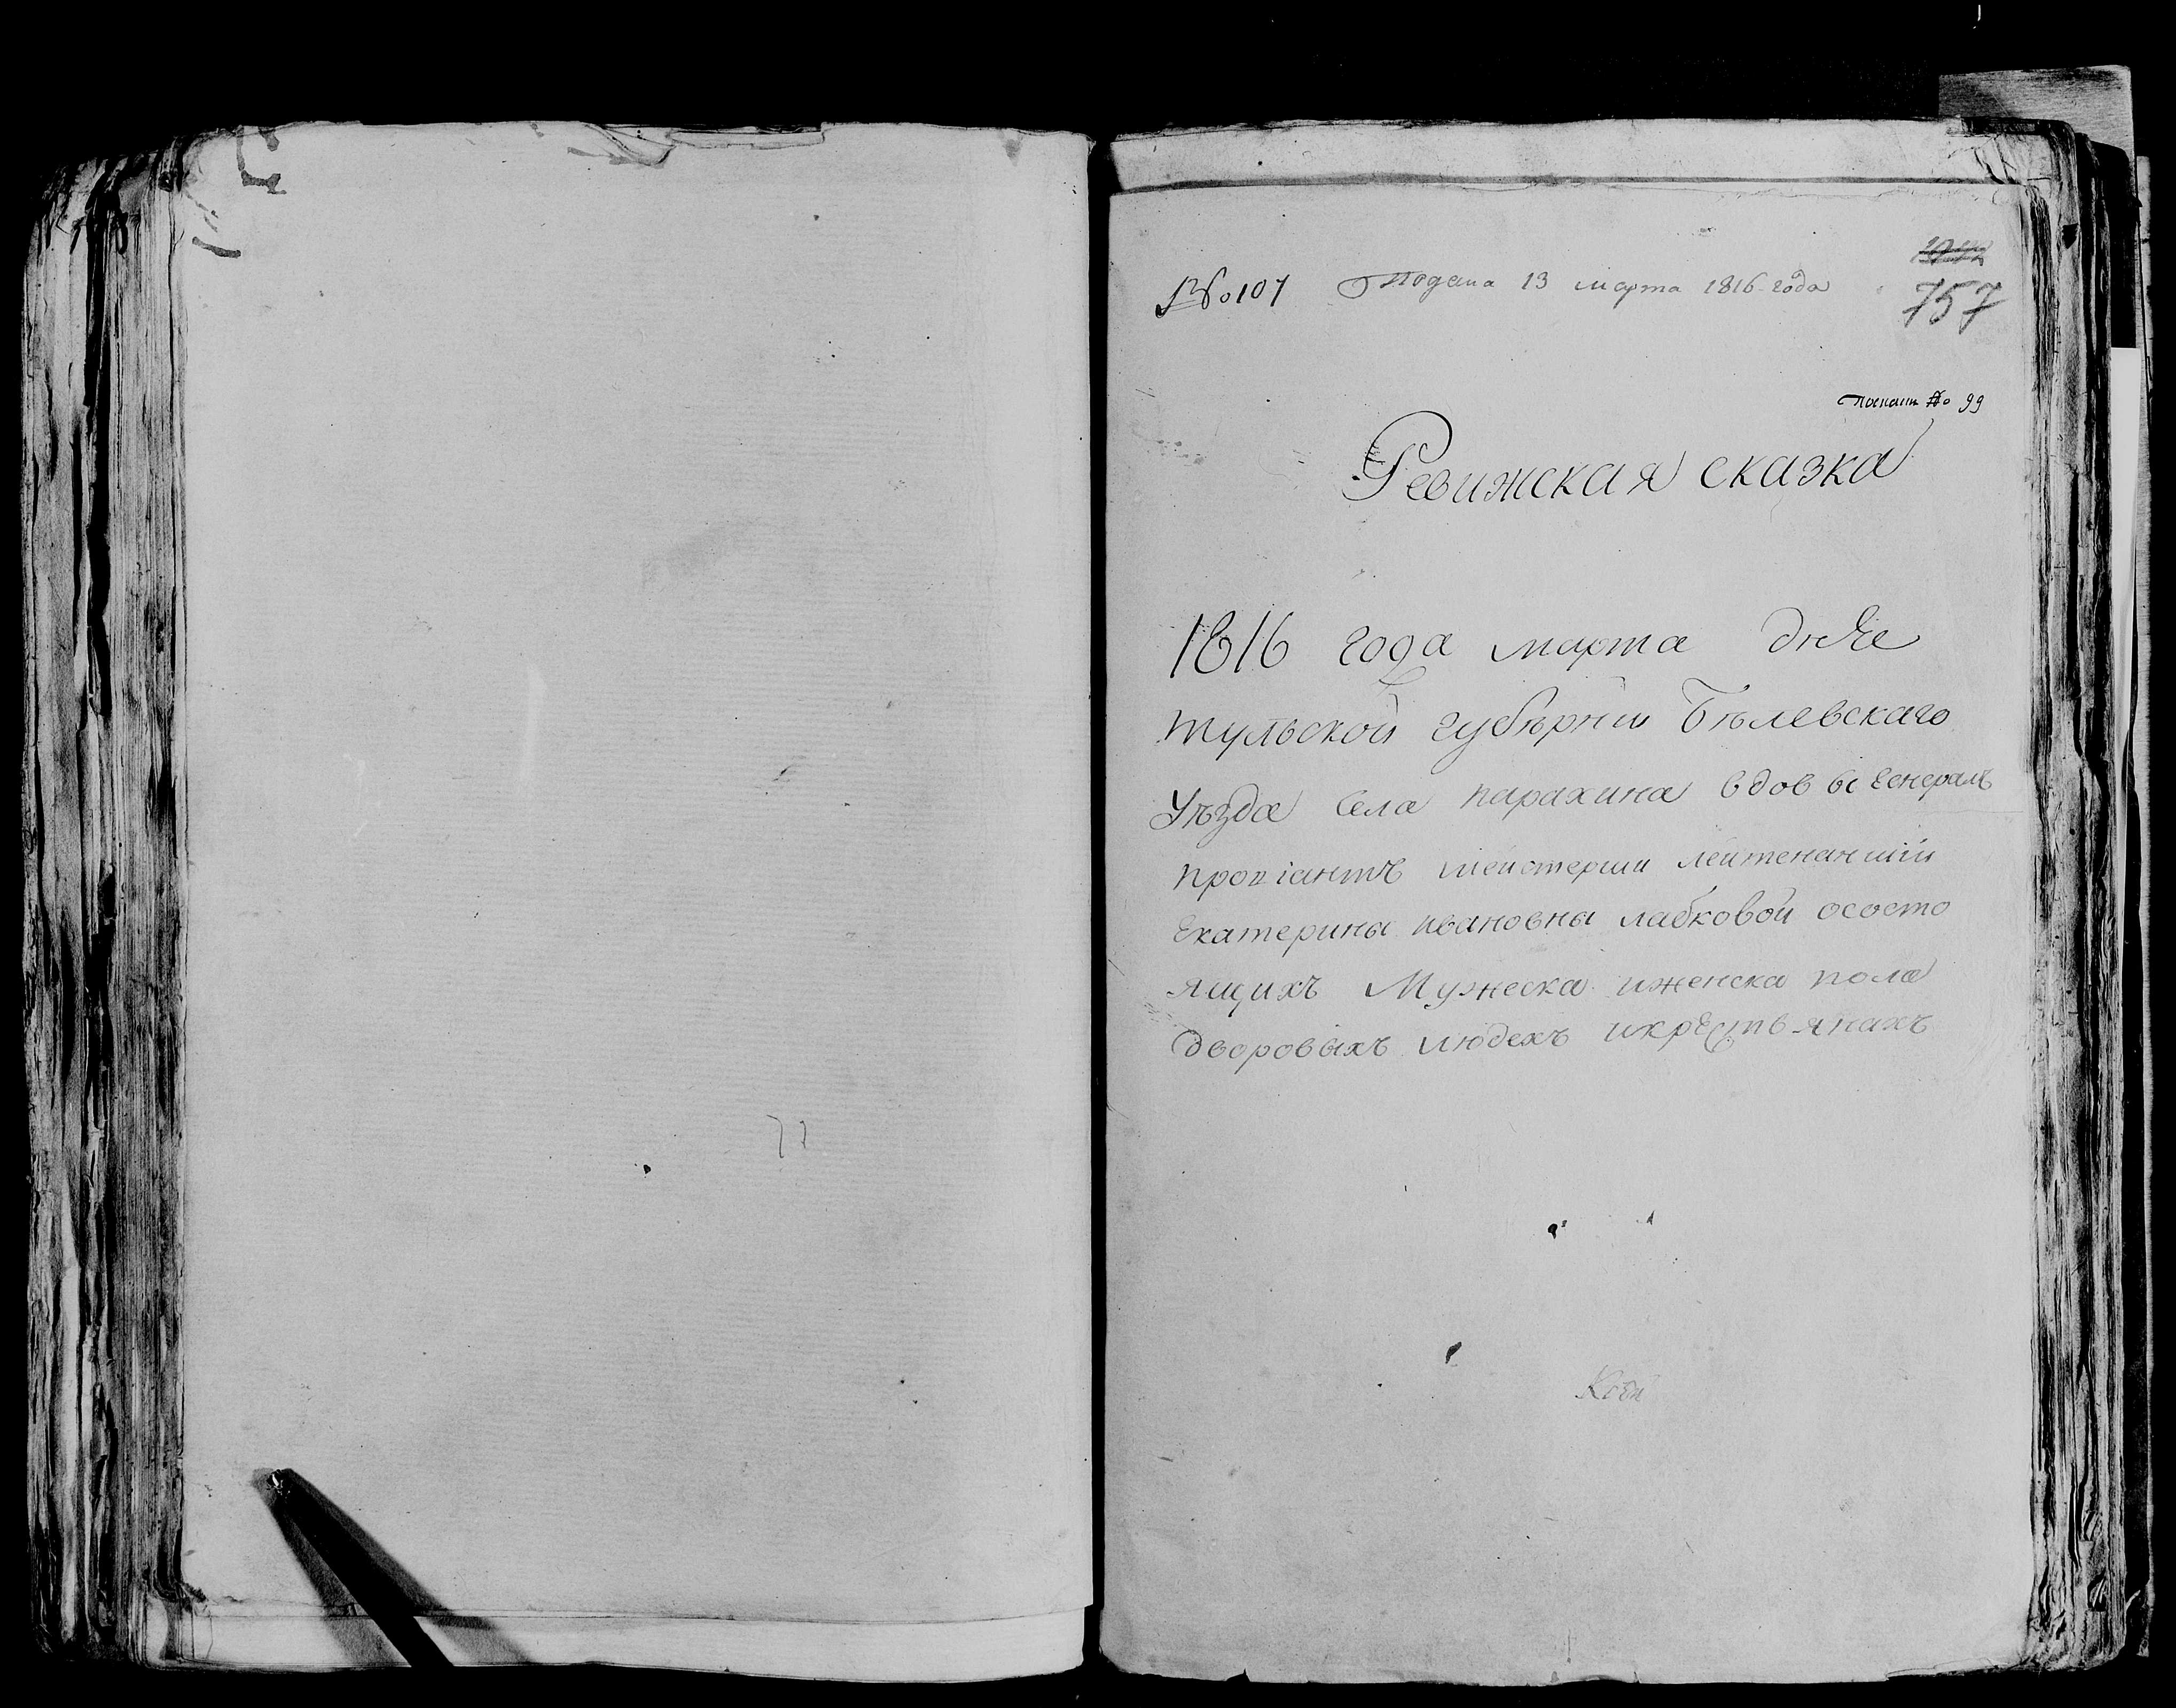 № 107 Подана 13 марта 1816 года
757
№ 99
Ревижская сказка
1816 года марта дня
тульской губѣрнии Бѣлевскаго
Уѣзда Села парахина вдовы генералъ
провіантъ мейстерши лейтенантши
Екатерины ивановны лабковой осостo
ящихъ Мужеска иженска пола
дворовыхъ людехъ икрестьянахъ